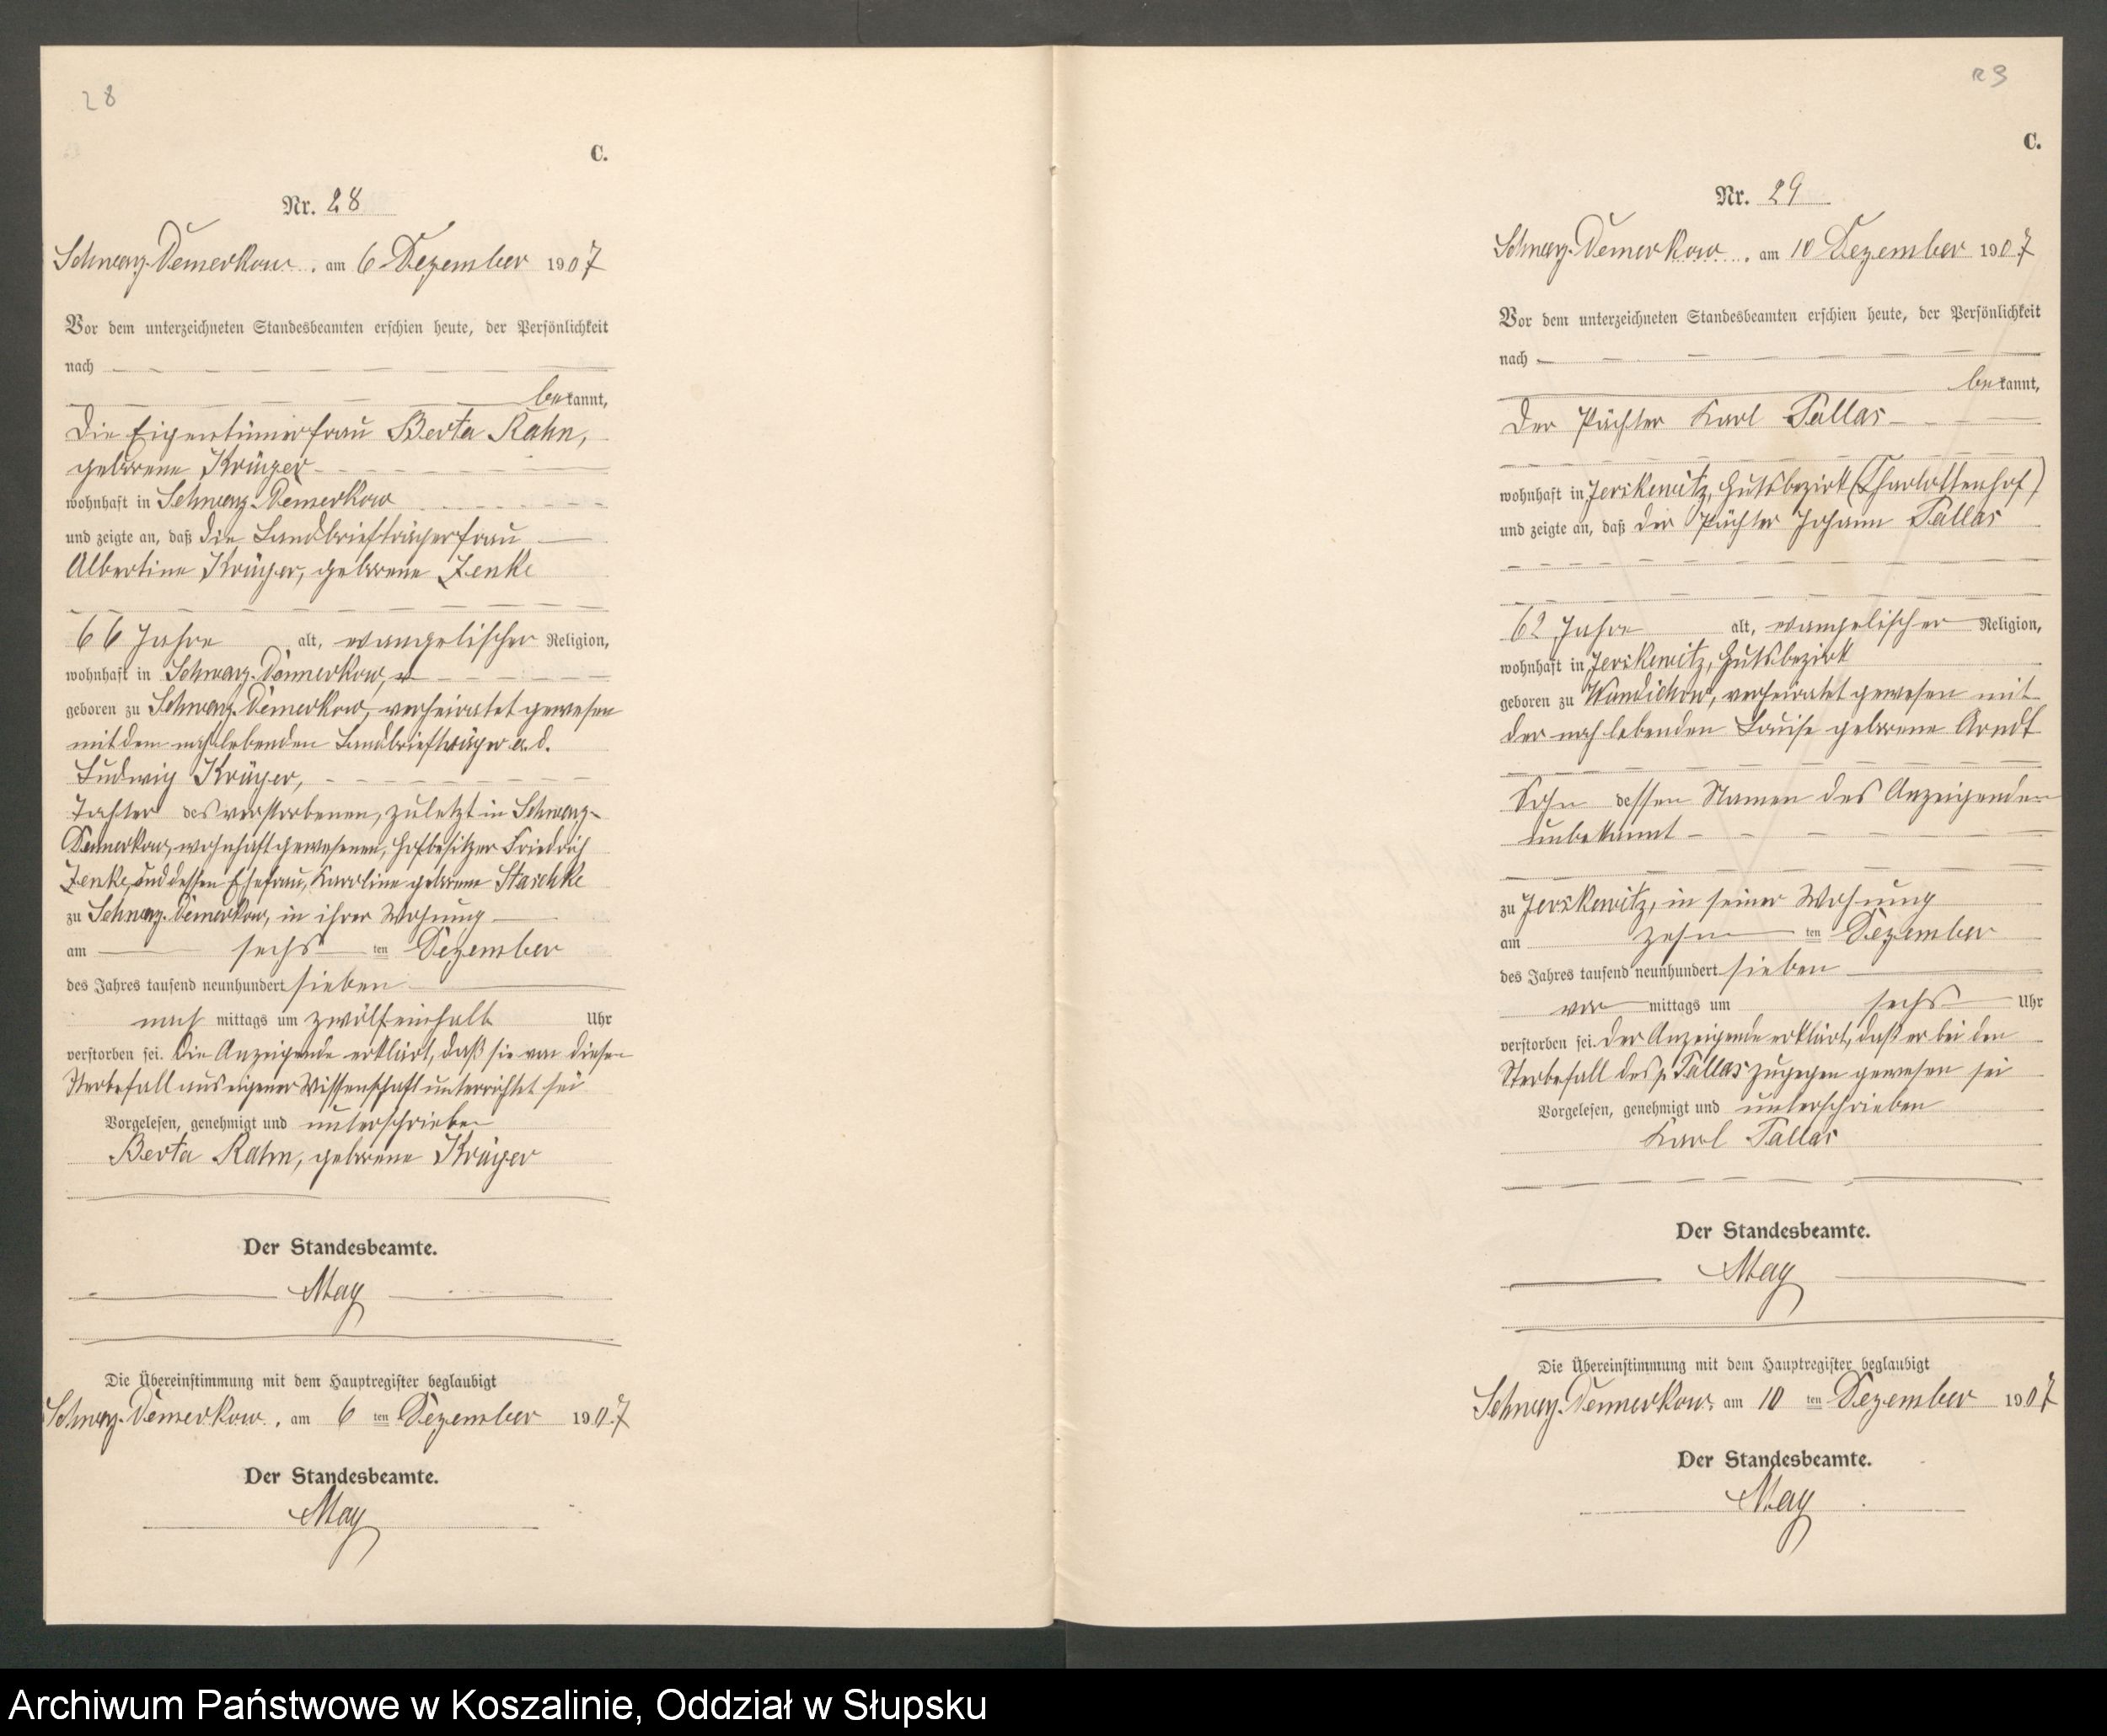 28
C.
Nr. 28
Schwarz-Damerkow. am 6 Dezember 1907
Vor dem unterzeichneten Standesbeamten erschien heute, der Persönlichkeit
nach
bekannt,
die Eigentümerfrau Berta Rahn,
geborene Krüger
wohnhaft in Schwarz-Damerkow
und zeigte an, daß die Landbriefträgerfrau
Albertine Krüger, geborene Zenke
66 Jahre alt, evangelischer Religion,
wohnhaft in Schwarz-Damerkow,
geboren zu Schwarz-Damerkow, verheiratet gewesen
mit dem noch lebenden Landbriefträger a. d.
Ludwig Krüger,
Tochter des verstorbenen, zuletzt in Schwarz-
Damerkow, wohnhaft gewesenen, Hofbesitzer Friedrich
Zenke, und dessen Ehefrau, Karoline geborene Staschke
zu Schwarz-Damerkow, in ihrer Wohnung
am sechsten Dezember
des Jahres tausend neunhundert sieben
nach mittags um zwölfeinhalb Uhr
verstorben sei. Die Anzeigende erklärt, daß sie von diesen
Sterbefall aus eigener Wissenschaft unterrichtet sei
Vorgelesen, genehmigt und unterschrieben
Berta Rahn, geborene Krüger
Der Standesbeamte.
May
Die Übereinstimmung mit dem Hauptregister beglaubigt
Schwarz-Damerkow, am 6 ten Dezember 1907
Der Standesbeamte.
May
C.
Nr. 29
Schwarz-Damerkow. am 10 Dezember 1907
Vor dem unterzeichneten Standesbeamten erschien heute, der Persönlichkeit
nach
bekannt,
der Pächter Karl Pallas
wohnhaft in Jerskewitz, Gutsbezirk (Charlottenhof)
und zeigte an, daß der Pächter Johann Pallas
62 Jahre alt, evangelischer Religion,
wohnhaft in Jerskewitz, Gutsbezirk
geboren zu Wundichow, verheiratet gewesen mit
der noch lebenden Louise geborene Arndt
Sohn dessen Namen des Anzeigenden
unbekannt
zu Jerskewitz, in seiner Wohnung
am zehn ten Dezember
des Jahres tausend neunhundert sieben
vor mittags um sechs Uhr
verstorben sei. Der Anzeigende erklärt, daß er bei den
Sterbefall des p. Pallas zugegen gewesen sei
Vorgelesen, genehmigt und unterschrieben
Karl Pallas
Der Standesbeamte.
May
Die Übereinstimmung mit dem Hauptregister beglaubigt
Schwarz-Damerkow, am 10 ten Dezember 1907
Der Standesbeamte.
May
Archiwum Państwowe w Koszalinie, Oddział w Słupsku